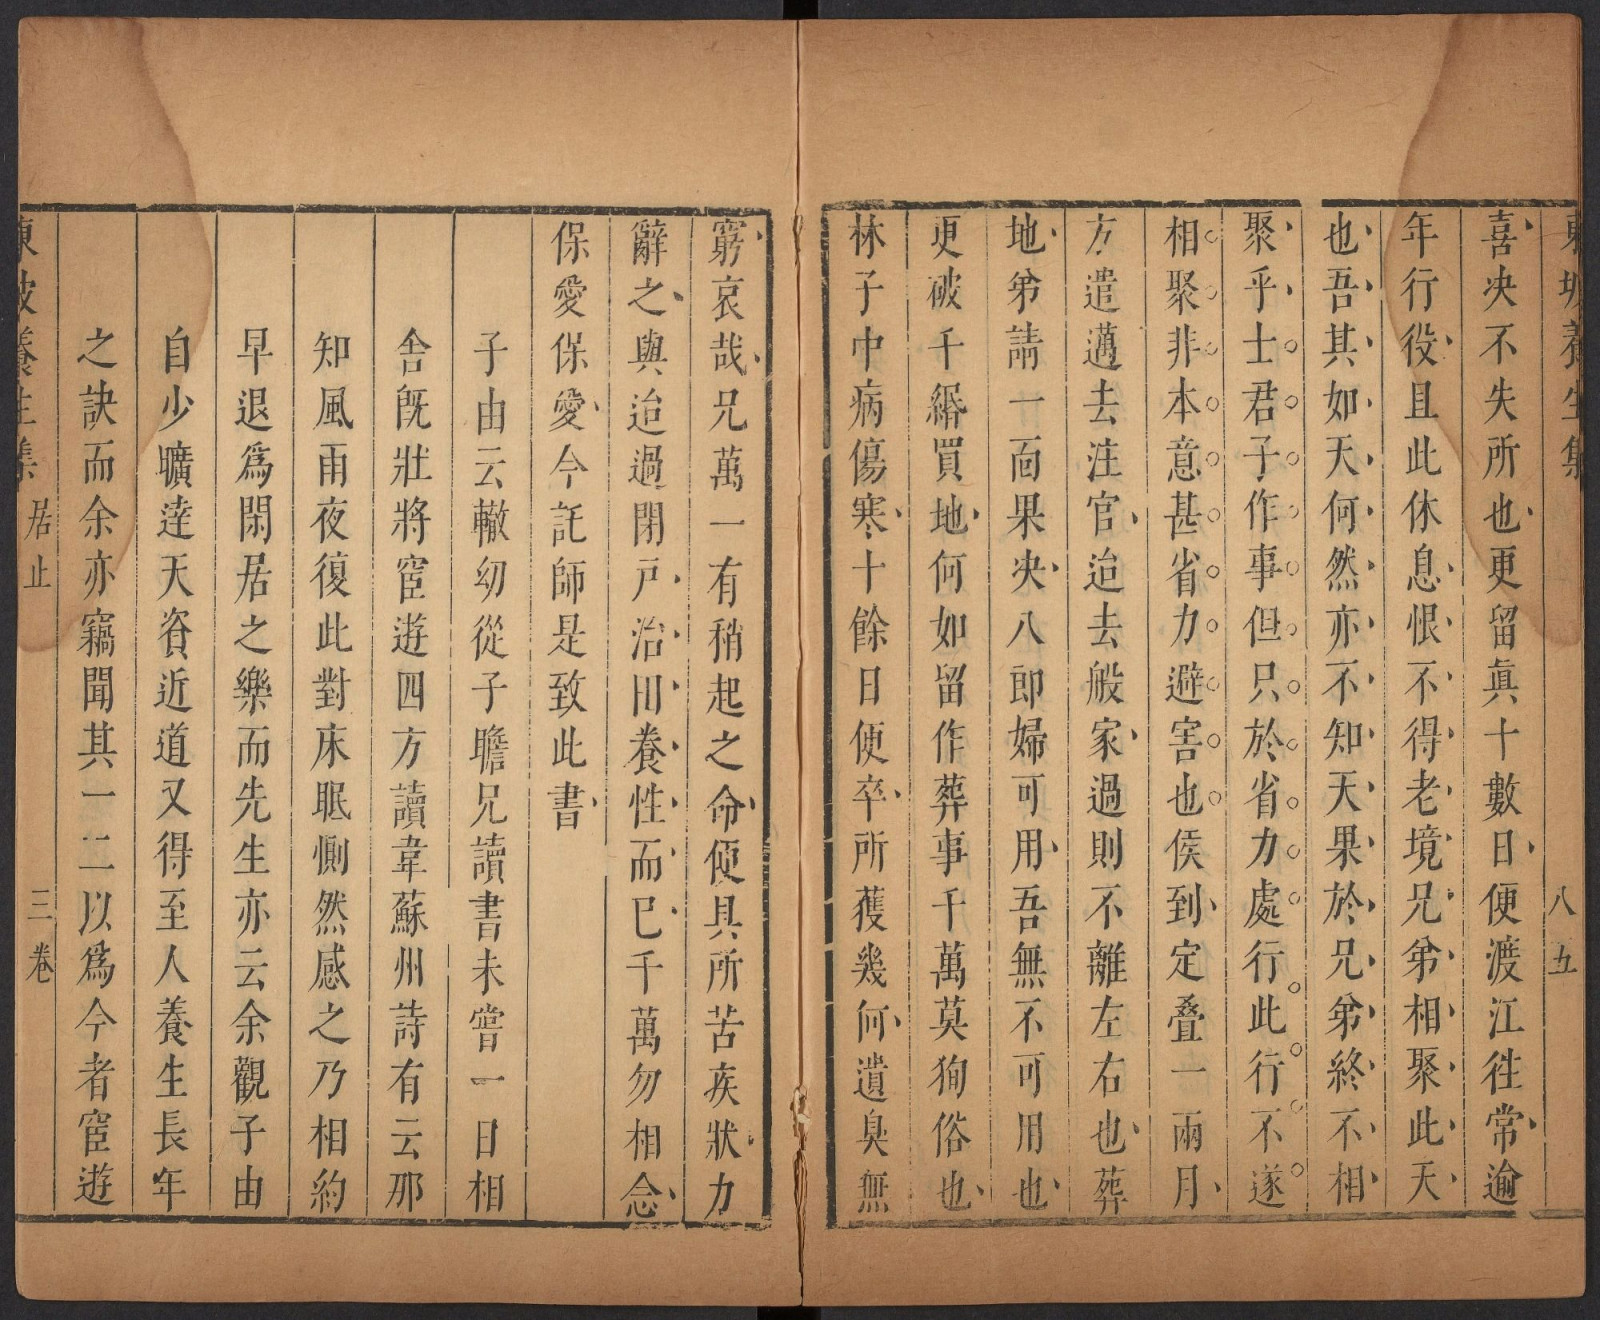 東坡養生集
八五
喜决不失所也更留眞十數日便渡江徃常逾
年行役且此休息恨不得老境兄弟相聚此天
也吾其如天何然亦不知天果於兄弟終不相
聚乎士君子作事但只於省力處行此行不遂
相聚非本意甚省力避害也侯到定叠一兩月
方遣邁去注官迨去般家過則不離左右也葬
地弟請一面果决八郎婦可用吾無不可用也
更破千緡買地何如留作葬事千萬莫狥俗也
林子中病傷寒十餘日便卒所獲幾何遺臭無
窮哀哉兄萬一有稍起之命便具所苦疾狀力
辭之與迨過閉戸治田養性而巳千萬勿相念
保愛保愛今託師是致此書
子由云轍幼從子瞻兄讀書未嘗一日相
舍旣壯將宦遊四方讀韋蘇州詩有云那
知風雨夜復此對床眠惻然感之乃相約
早退爲閑居之樂而先生亦云余觀子由
自少曠逹天資近道又得至人養生長年
之訣而余亦竊聞其一二以爲今者宦遊
東坡養生集
居止
三卷